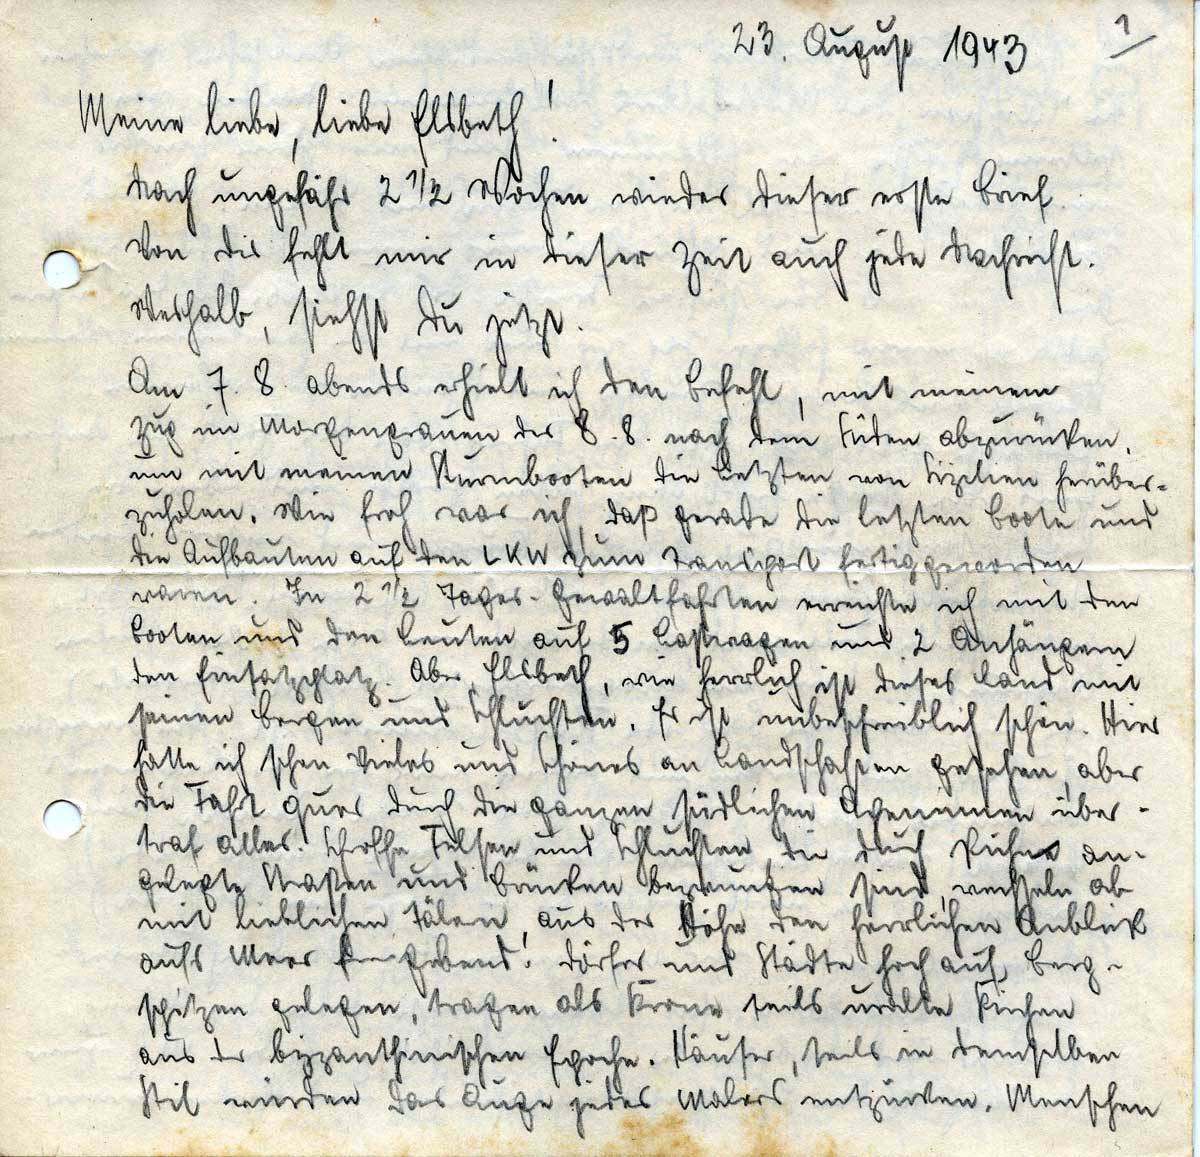 23. August 1943
1
Meine liebe, liebe Elsbeth!
Nach ungefähr 2 1/2 Wochen wieder dieser erste Brief.
Von dir fehlt mir in dieser Zeit auch jede Nachricht.
Weshalb, siehst Du jetzt.
Am 7. 8. abends erhielt ich den Befehl, mit meinem
Zug im Morgengrauen des 8. 8. nach dem Süden abzurücken,
um mit meinen Sturmbooten die Letzten von Sizilien herüber-
zuholen. Wie froh war ich, daß gerade die letzten Boote und
die Aufbauten auf den LKW zum Transport fertiggeworden
waren. In 2 1/2 Tages-Gewaltfahrten erreichte ich mit den
Booten und den Leuten auf 5 Lastwagen und 2 Anhängern
den Einsatzplatz. Aber, Elsbeth, wie herrlich ist dieses Land mit
seinen Bergen und Schluchten. Es ist unbeschreiblich schön. Hier
hatte ich schon Vieles und Schönes an Landschaften gesehen, aber
die Fahrt quer durch die ganzen südlichen Apenninen über-
traf alles. Schroffe Felsen und Schluchten, die durch kühne an-
gelegte Straßen und Brücken bezwungen sind, wechseln ab
mit lieblichen Tälern, aus der Höhe den herrlichen Anblick
aufs Meer gebend. Dörfer und Städte hoch auf Berg-
spitzen gelegen, tragen als Krone teils uralte Kirchen
aus der byzanthinischen Epoche. Häuser, teils in demselben
Stil würden das Auge jedes Malers entzücken. Menschen